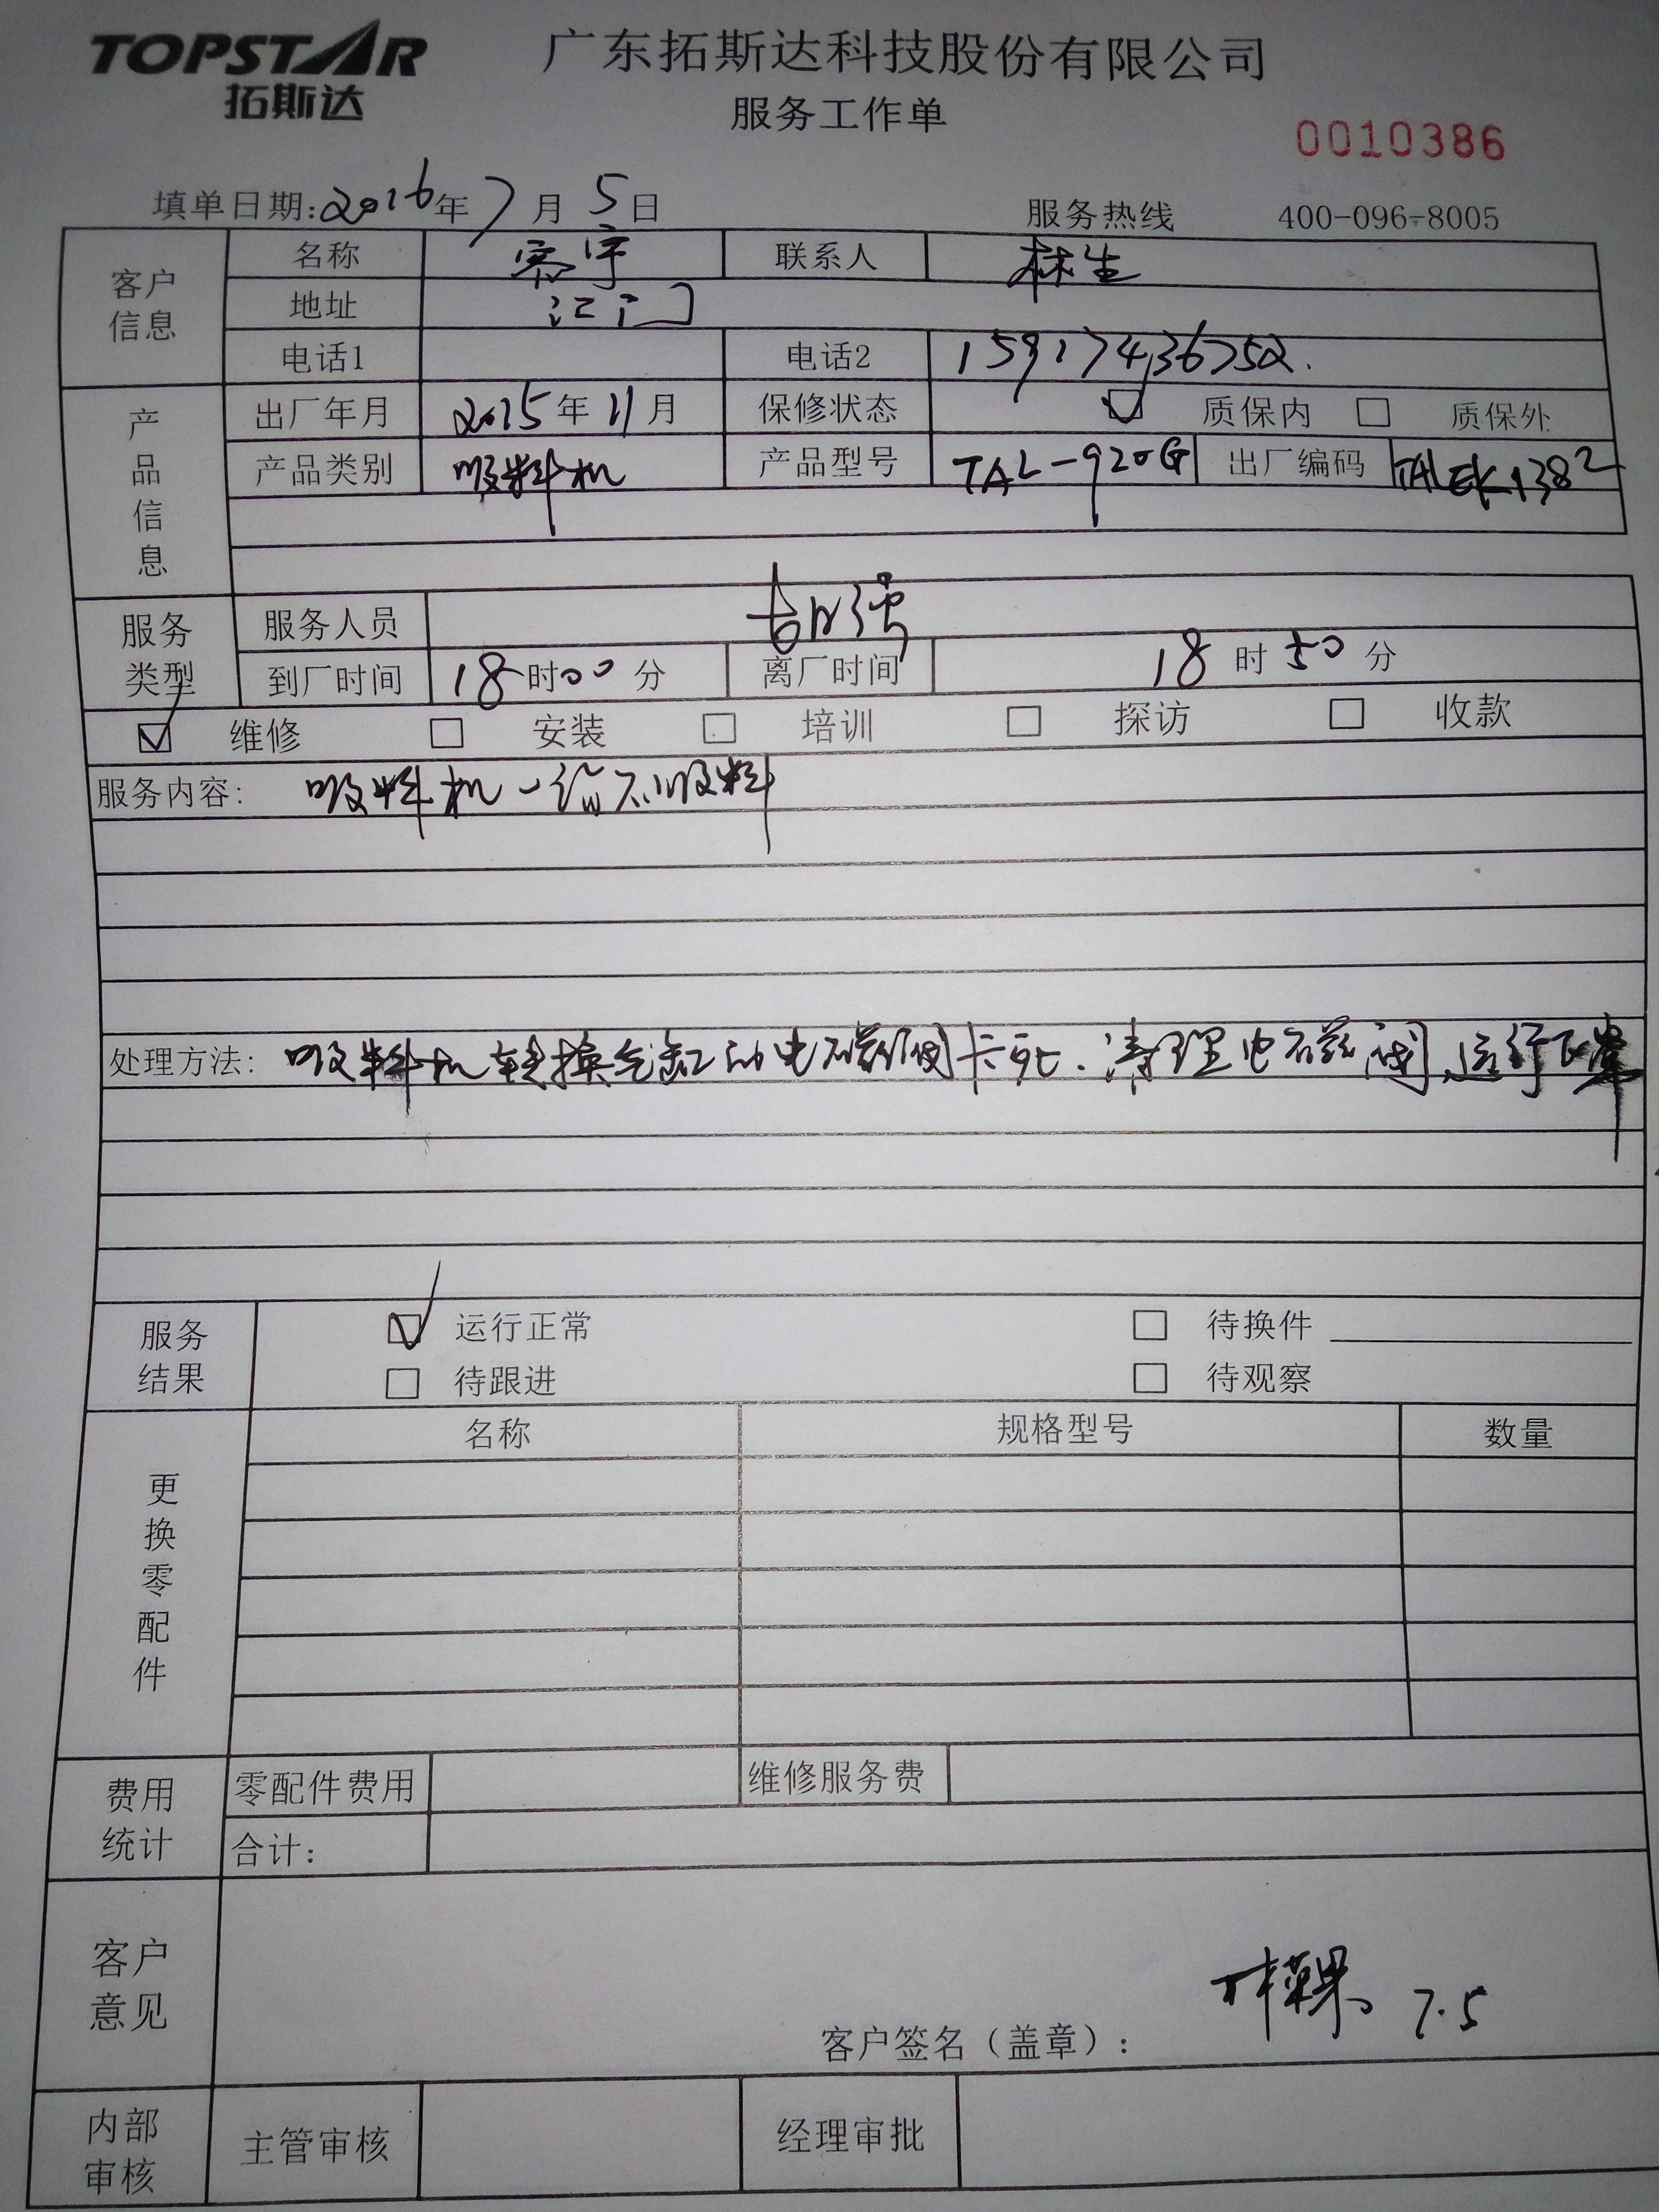 TOPSTAR
拓斯达
广东拓斯达科技股份有限公司
服务工作单
0010386
填单日期:2016年7月5日
服务热线 400-096-8005
客户信息
名称 宇 联系人 林生
地址 江门
电话1 电话2 15917436752.
产品信息
出厂年月 2015年11月 保修状态 质保内 质保外
产品类别 吸料机 产品型号 TAL-920G 出厂编码
服务类型
服务人员 强
到厂时间 18时00分 离厂时间 18时50分
维修 安装 培训 探访 收款
服务内容: 吸料机一缸不吸料
处理方法: 吸料机转换气缸的电磁阀卡死.清理电磁阀.运行正常
服务结果
运行正常 待换件
待跟进 待观察
更换零配件
名称 规格型号 数量
费用统计
零配件费用 维修服务费
合计:
客户意见
客户签名(盖章): 7.5
内部审核
主管审核 经理审批